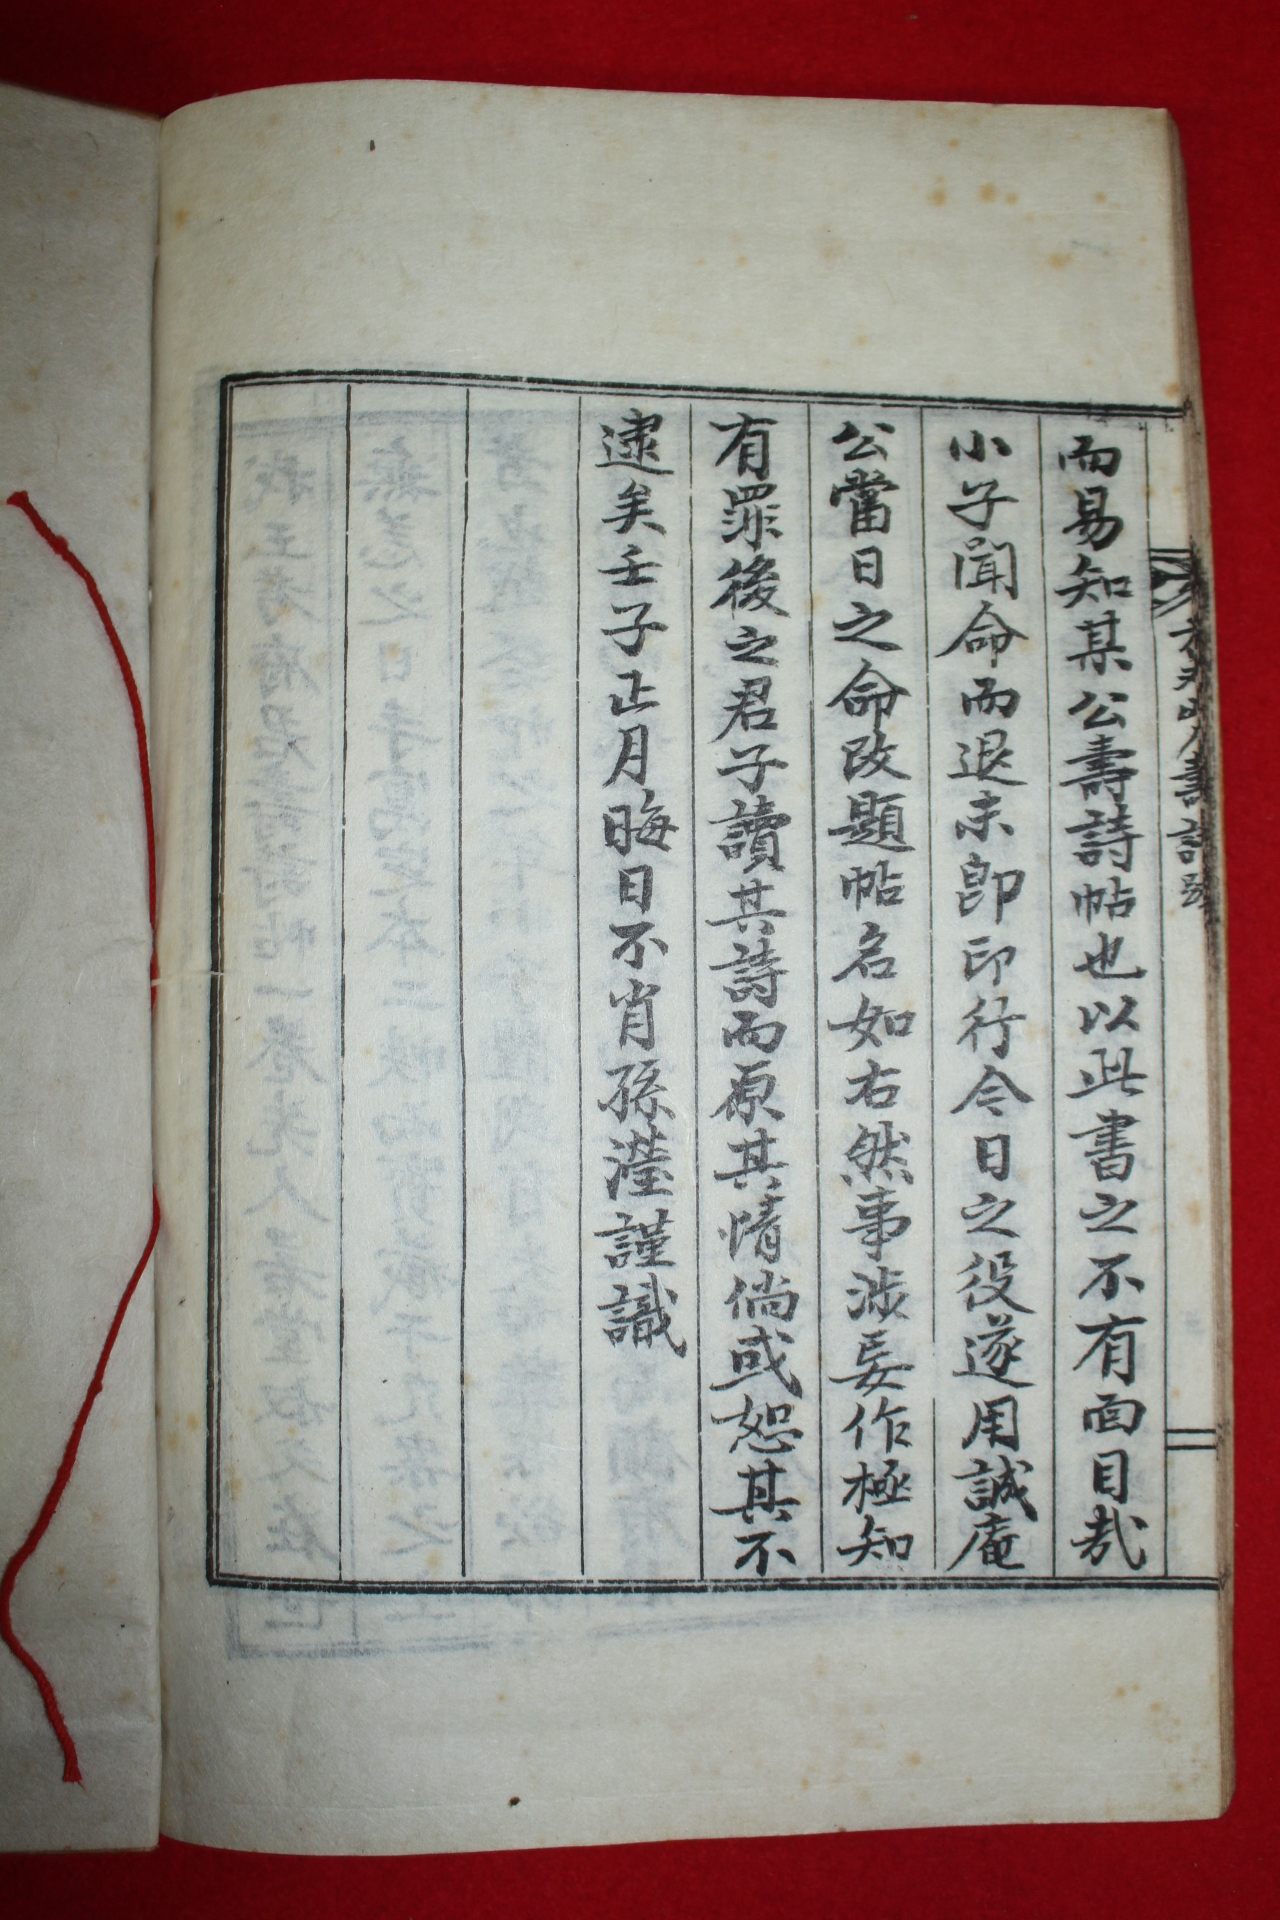 而易知某公壽詩帖也以此書之不有面目哉
小子聞命而退未卽印行今日之役遂用誠庵
公當日之命改題帖名如右然事涉妄作極知
有罪後之君子讀其詩而原其情倘或恕其不
逮矣壬子正月晦日不肖孫瀅謹識